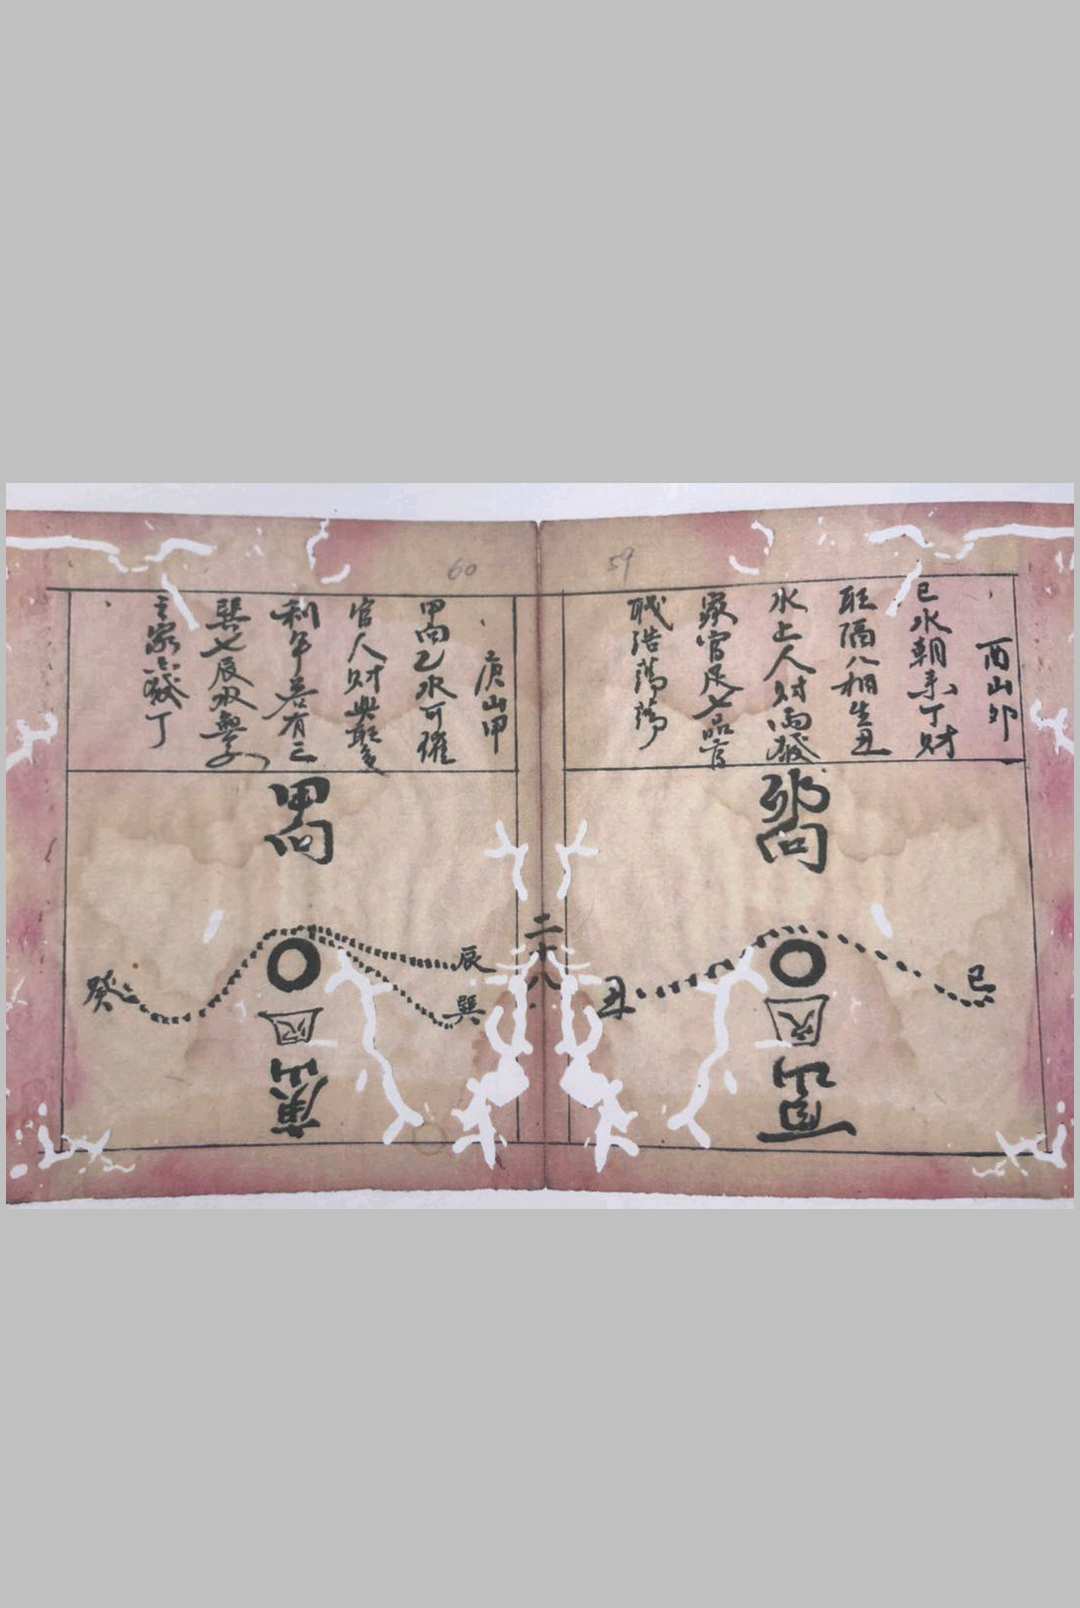 59
酉山卯
巳水朝來丁財
旺隔八相生丑
水上人財兩發
家官足七品官
職浩蕩蕩
卯向
巳
丑
穴
酉山
二十八
60
庚山甲
甲向乙水可催
官人財
利年若有三
巽七辰水
主家發丁
甲向
辰
巽
癸
穴
庚山